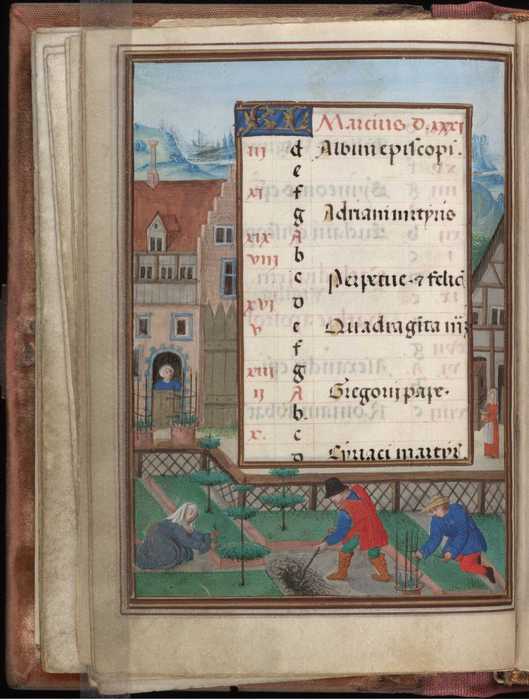 Marcius D. xxxi
iii d Albini episcopi.
e
xi f
g Adriani mrtyris
xix A
viii b
c Perpetue ⁊ felic
xvi d
v e Quadragita
f
xiii g
ii A Gregorii pape.
b
x. c
d Cyriaci martyr.